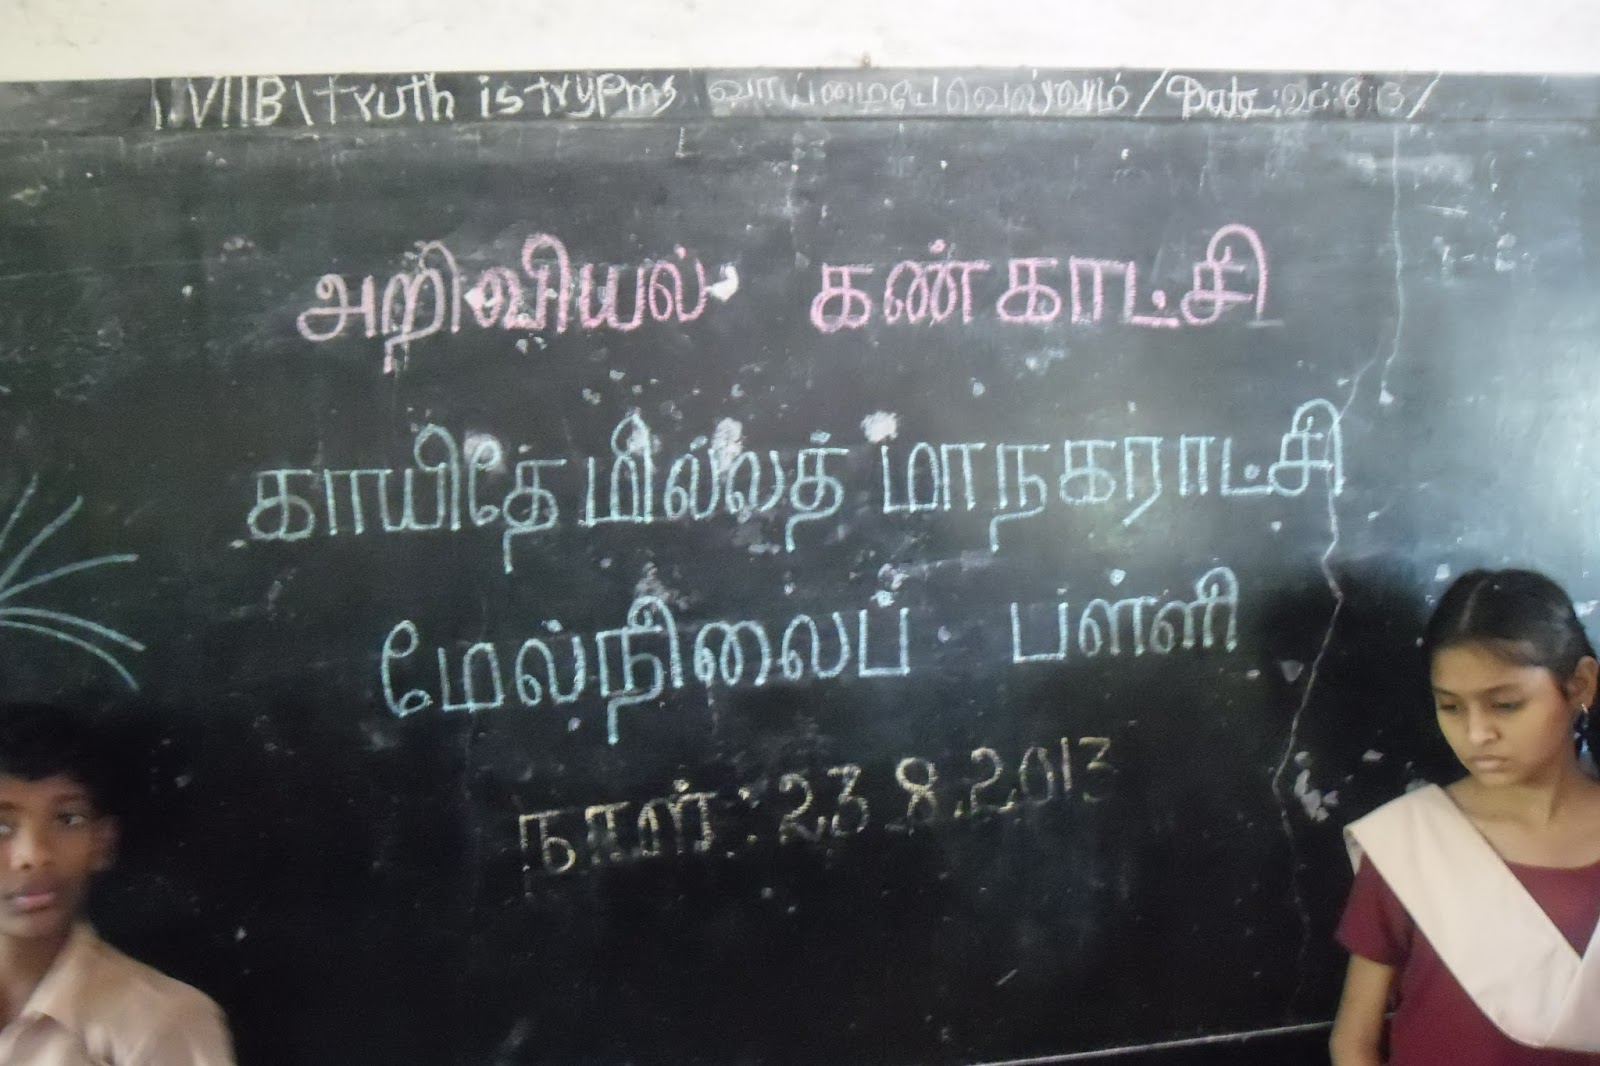 VIIB \ truth is trypms வாய்மையே வெல்லும் / Date: 20.8.13 /
அறிவியல் கண்காட்சி
காயிதே மில்லத் மாநகராட்சி
மேல்நிலைப் பள்ளி
நாள் : 23.8.2013